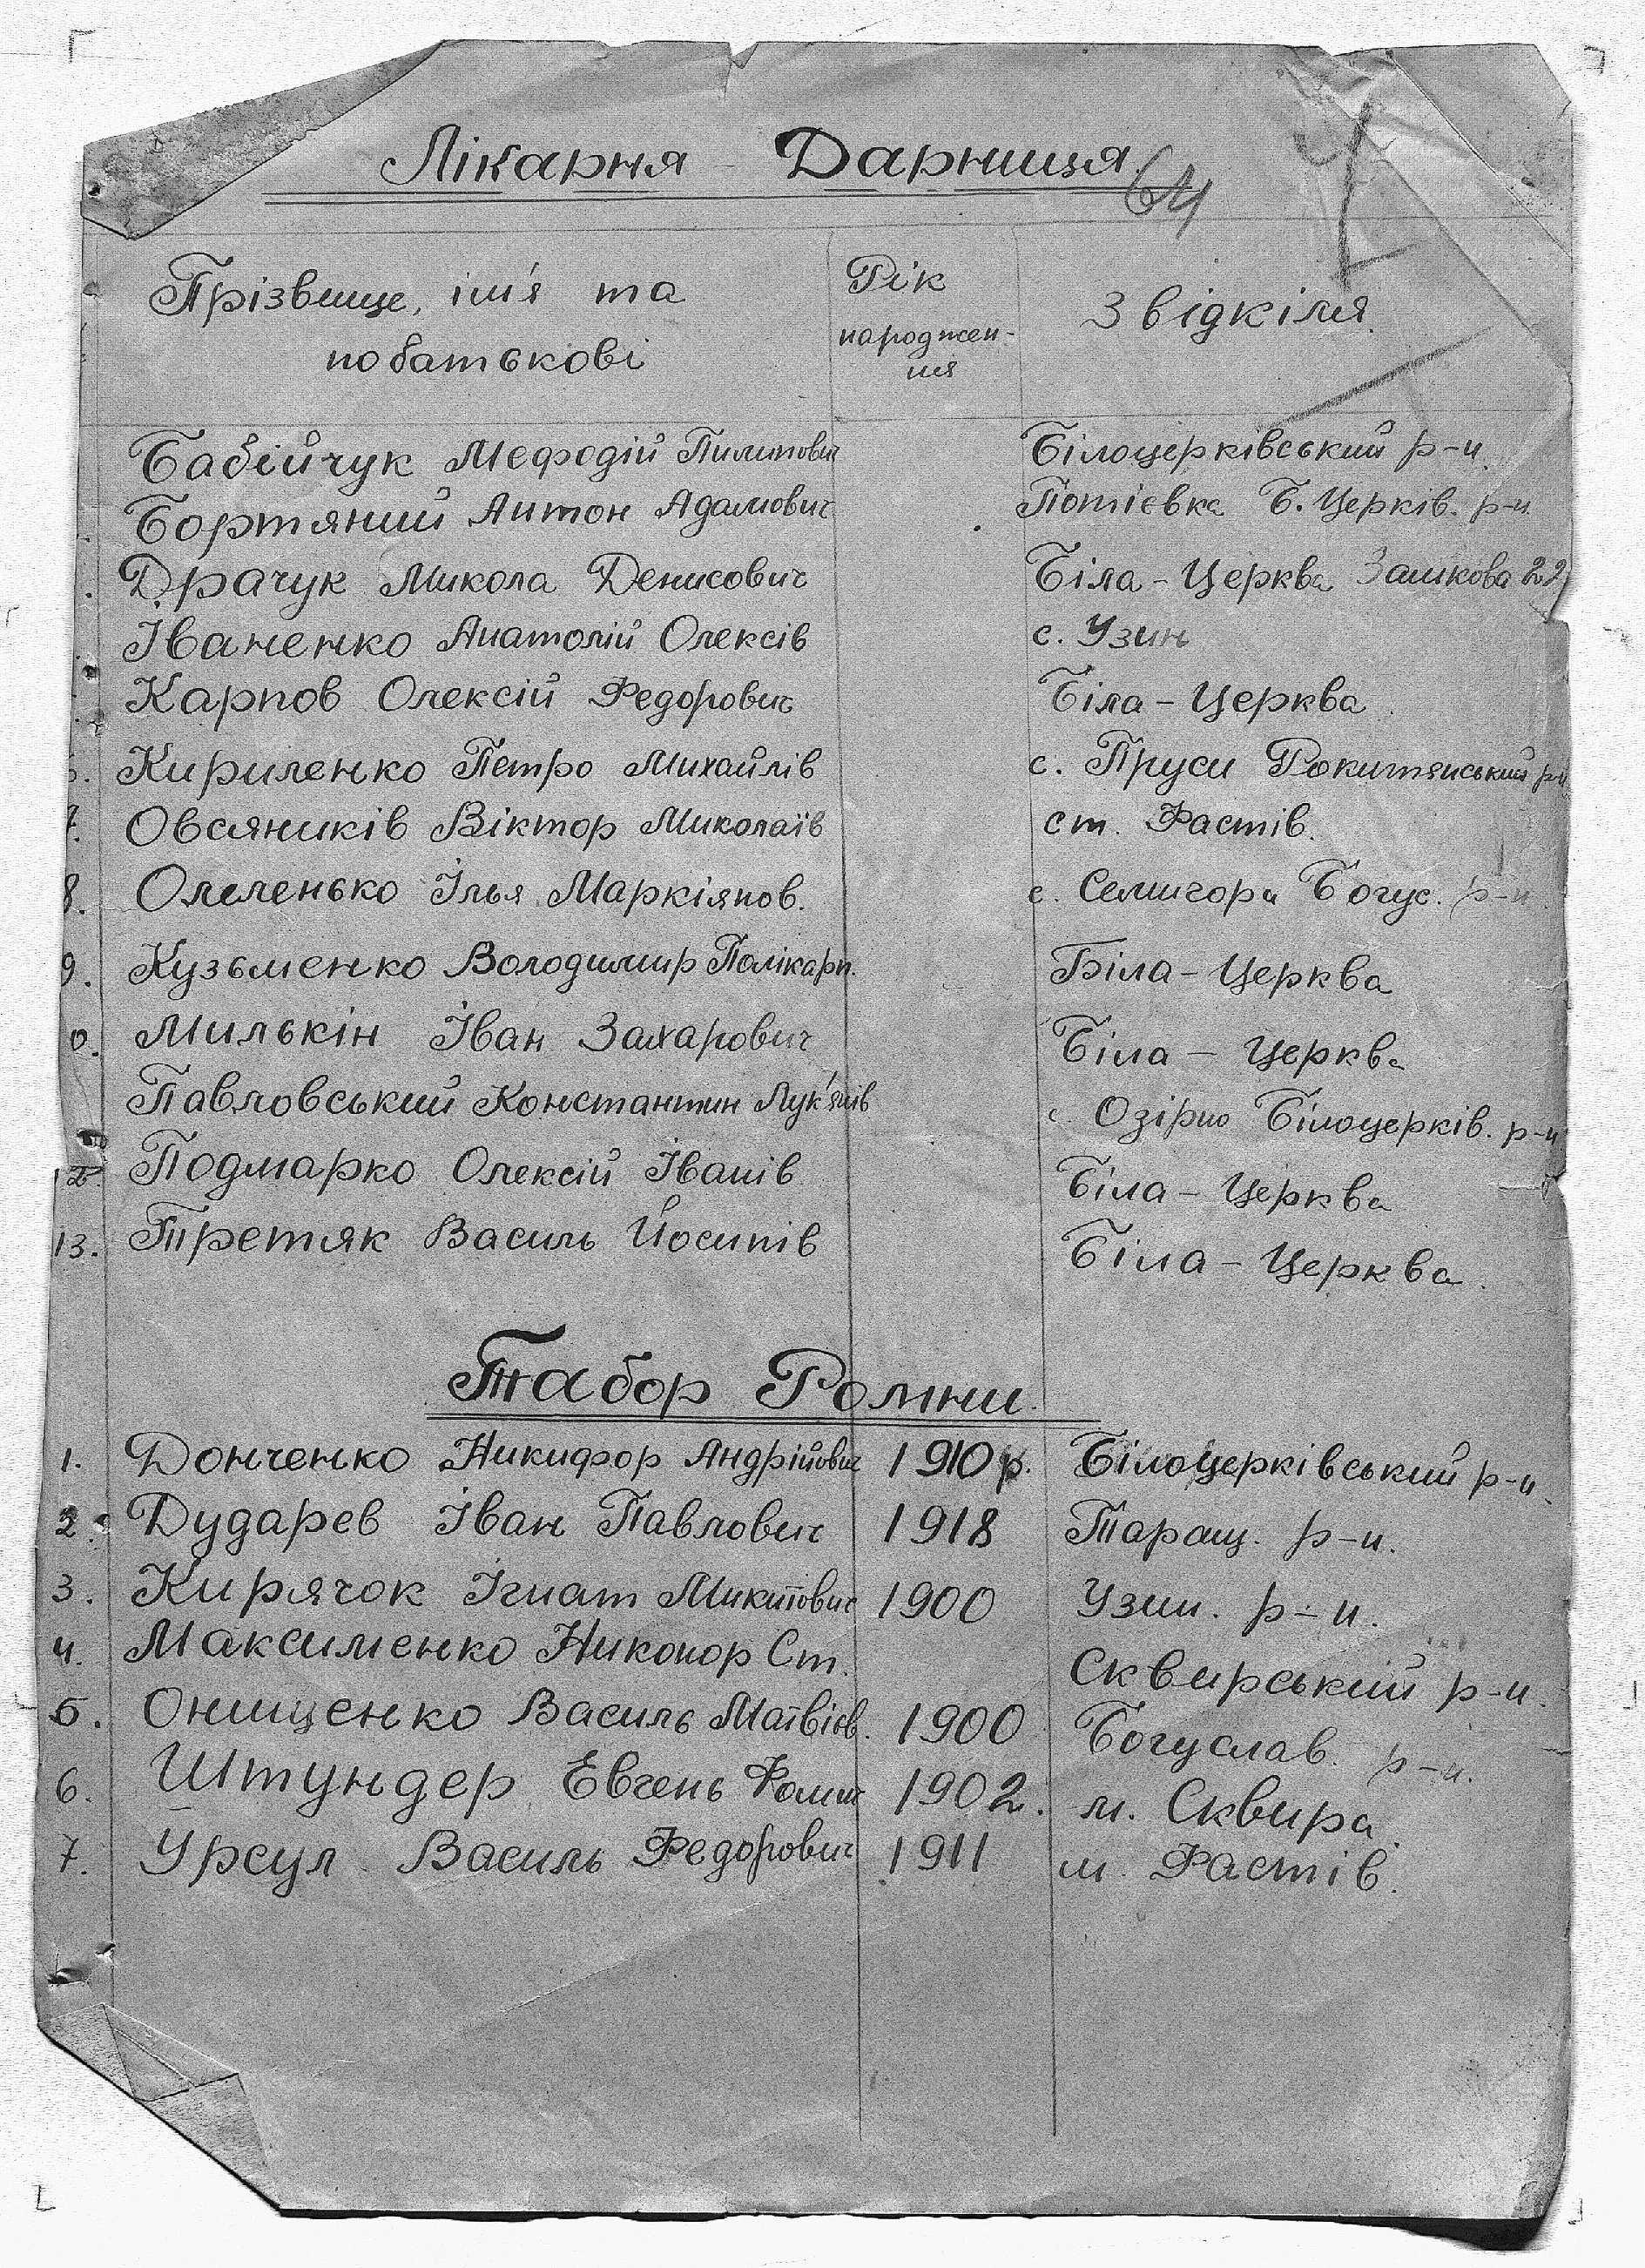 Лікарня – Дарниця
64
Прізвище, ім'я та
по батькові
Рік
народжен-
ня
З відкіля.
Бабійчук Мефодій Пилипович Білоцерківський р-н.
Бортяний Антон Адамович Потієвка Б. Церків. р-н.
Драчук Микола Денисович Біла-Церква 22
Іваненко Анатолій Олексів с. Узин
Карпов Олексій Федорович Біла-Церква.
6. Кириленко Петро Михайлів с. Пруси Рокитянський р-н.
7. Овсяників Віктор Миколаїв ст. Фастів.
8. Омеленько Ілья Маркіянов. с. Семигора Богус. р-н.
9. Кузьменко Володимир Полікарп. Біла-Церква
0. Милькін Іван Захарович Біла – Церква
Павловський Константин Лук'янів с. Озірно Білоцерків. р-н
12. Подмарко Олексій Іванів Біла-Церква
13. Третяк Василь Йосипів Біла-Церква.
Табор Ромни.
1. Донченко Никифор Андрійович 1910 р. Білоцерківський р-н.
2. Дударев Іван Павлович 1918 Таращ. р-н.
3. Кирячок Ігнат Микитович 1900 Узин. р-н.
4. Максименко Никонор Ст. Сквирський р-н.
5. Онищенко Василь Матвієв. 1900 Богуслав. р-н.
6. Штундер Евгень Фомич 1902. м. Сквира.
7. Урсул Василь Федорович 1911 м. Фастів.